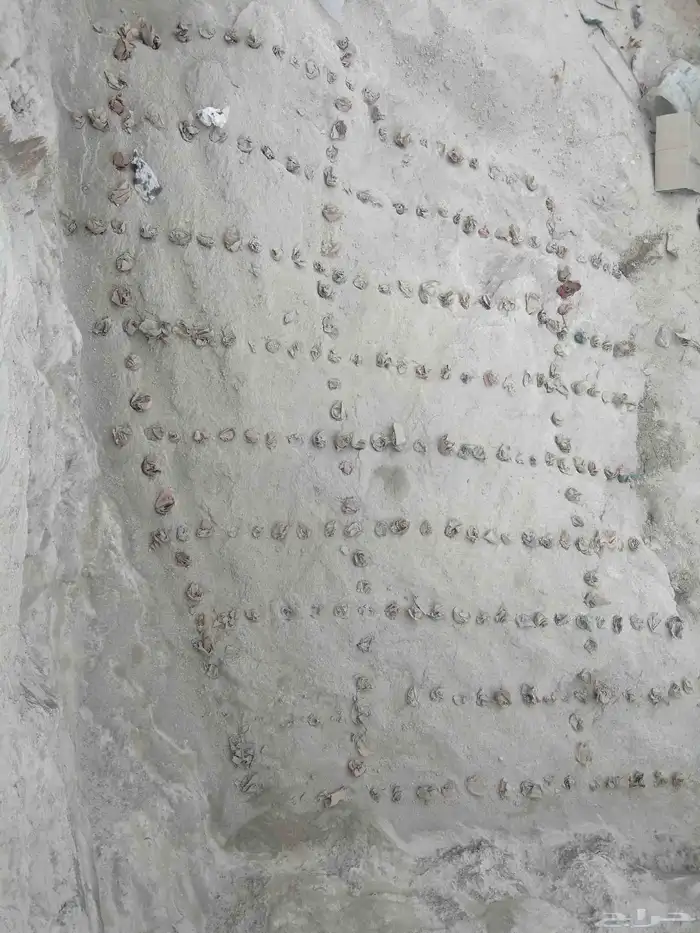 حراج